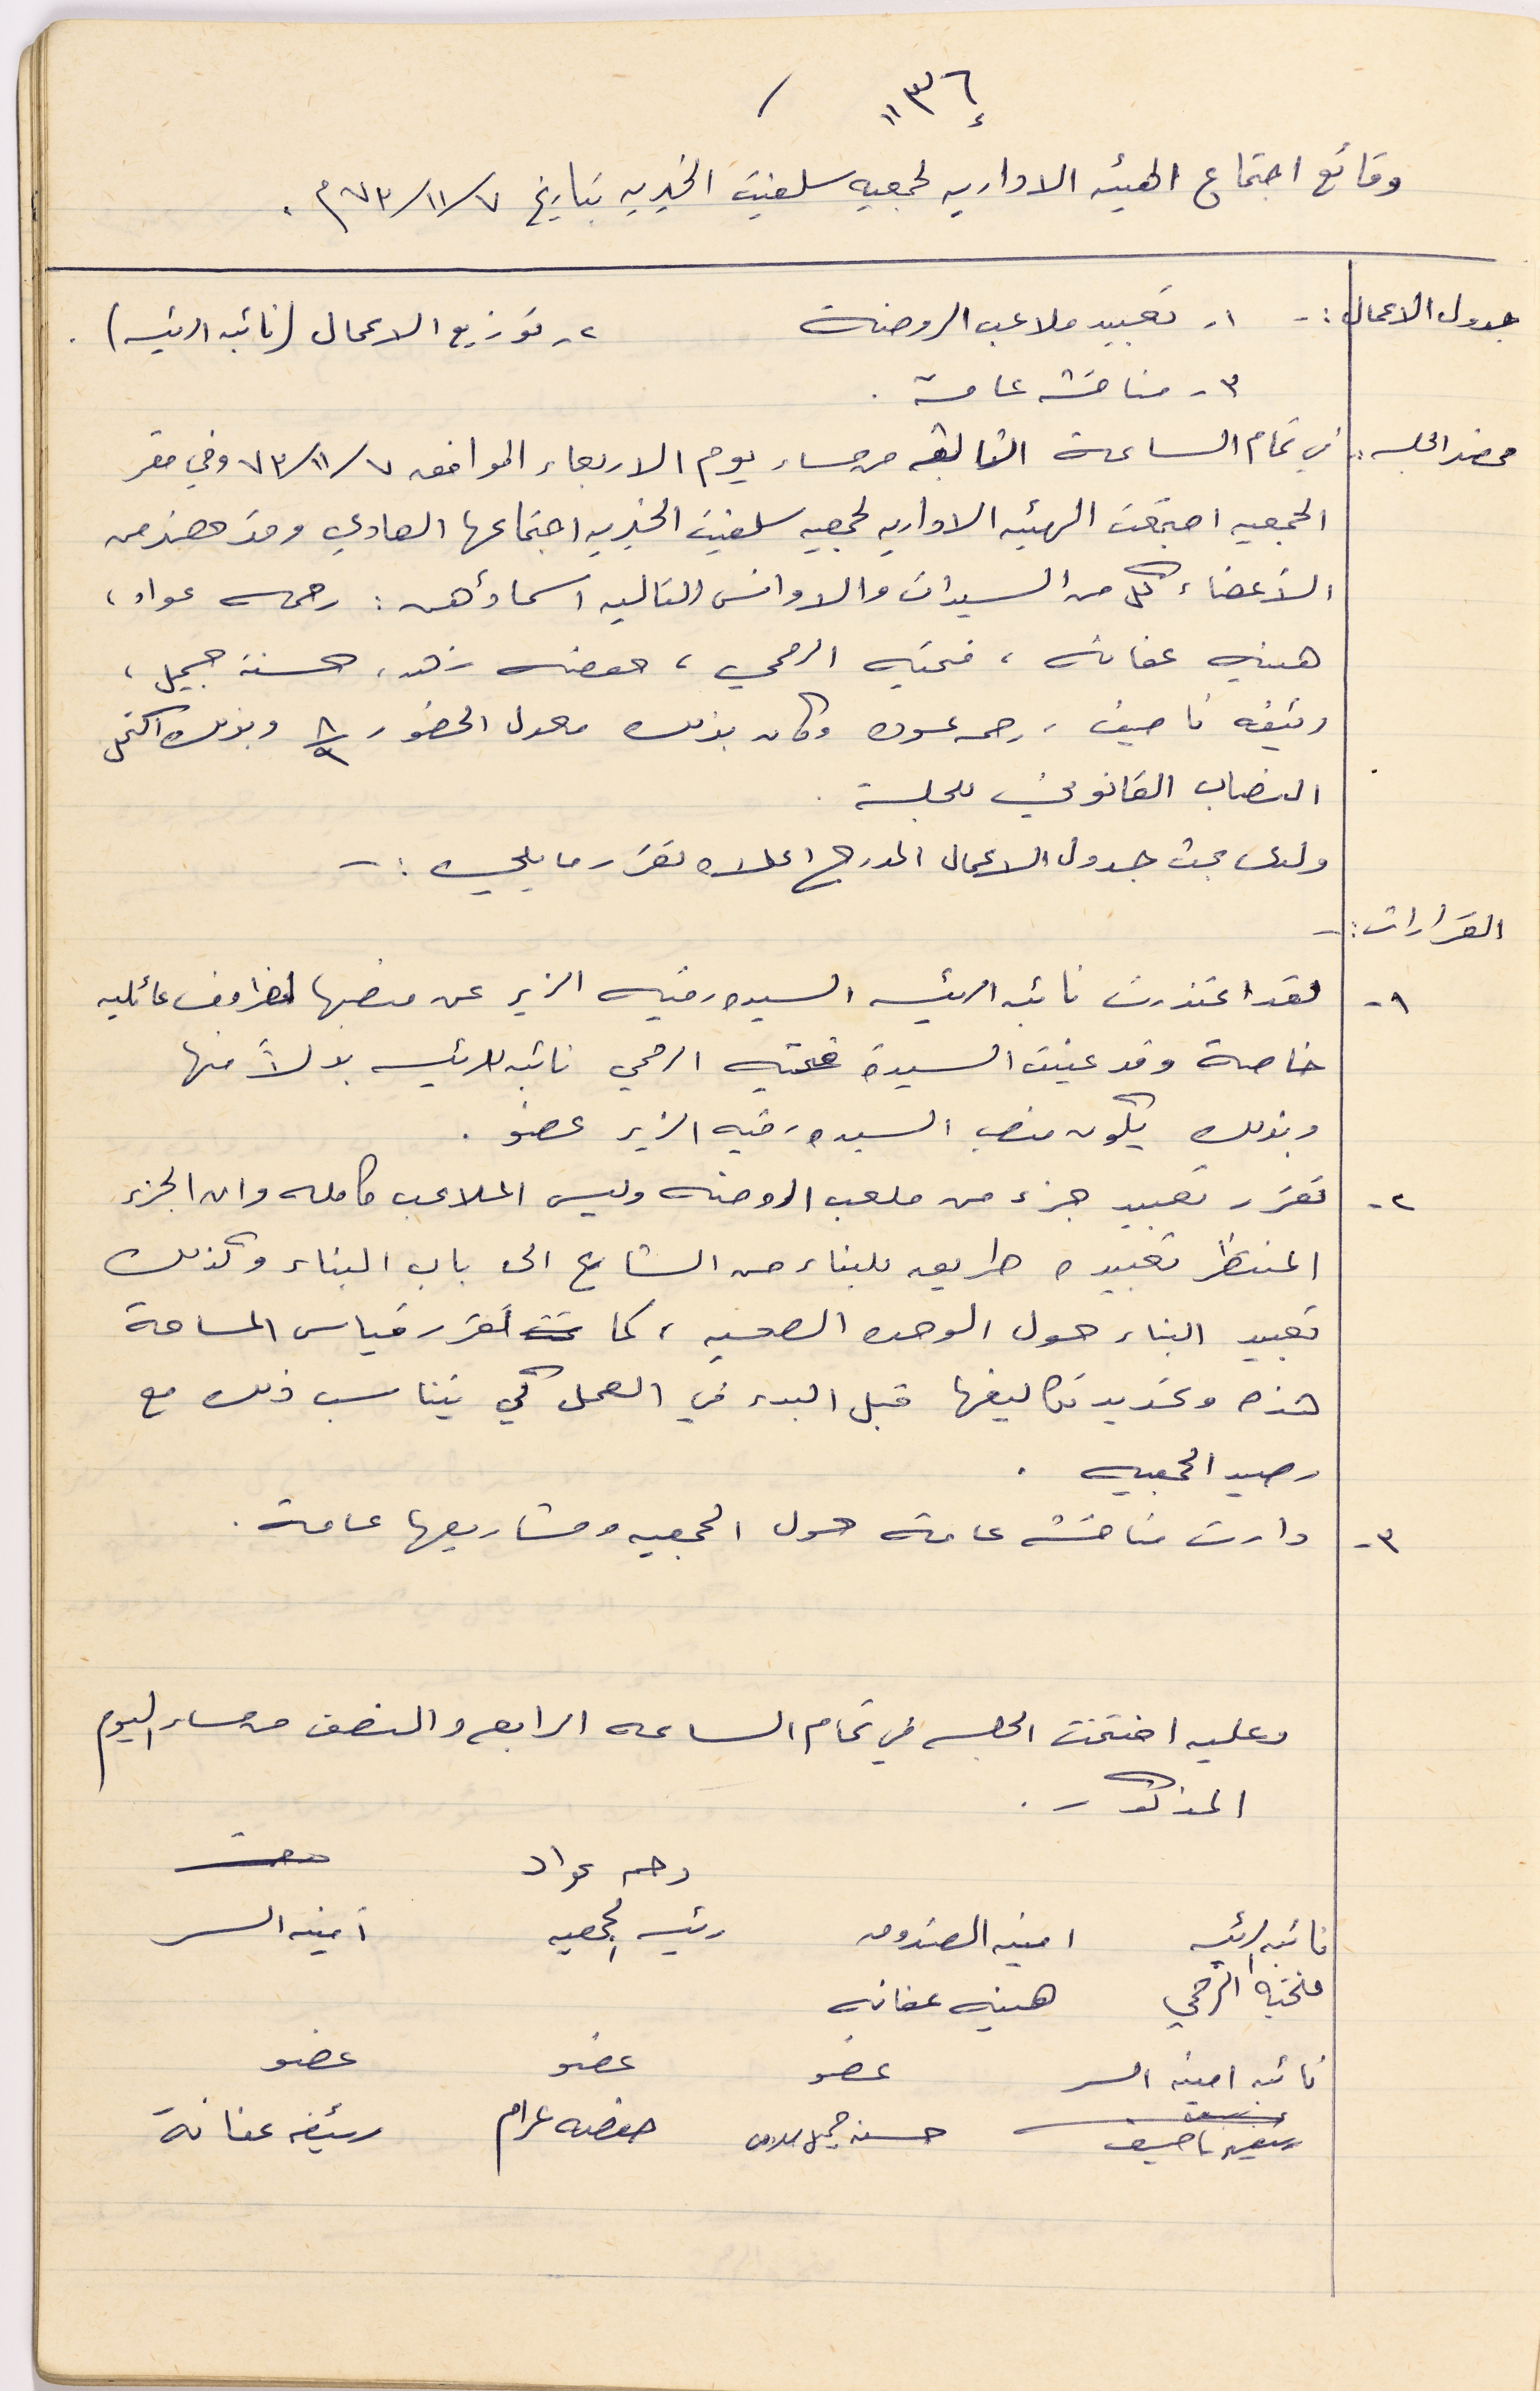 ١١٣٦
وقائع اجتماع الهيئه الاداريه لجمعيه سلفيت الخيريه بتاريخ ٧٣/١١/٧م .
جدول الاعمال :- ١- تعبيد ملاعب الروضة ٢- توزيع الاعمال (نائبه الرئيسه) .
٣- مناقشه عامة .
محضر الجلسه : في تمام الساعة الثالثه من مساء يوم الاربعاء الموافق ٧٣/١١/٧ وفي مقر
الجمعيه اجتمعت الهيئه الاداريه لجمعيه سلفيت الخيريه اجتماعها العادي وقد حضر من
الأعضاء كل من السيدات والاوانس التاليه اسماؤهن : رحمه عواد ،
هنيه عفانه ، فتحيه الرحمي ، حفصه زهد ، حسنة جميل ،
رئيفه ناصيف ، رحمه عوده وكان بذلك معدل الحضور ٨/٩ وبذلك اكتمل
النصاب القانوني للجلسة .
ولدى بحث جدول الاعمال المدرج اعلاه تقرر ما يلي :-
القرارات :-
١- لقد اعتذرت نائبه الرئيسه السيده رقيه الزير عن منصبها لظروف عائليه
خاصة وقد عينت السيدة فتحيه الرحمي نائبه للرئيسه بدلاً منها
وبذلك يكون منصب السيده رقيه الزير عضو .
٢- تقرر تعبيد جزء من ملعب الروضه وليس الملاعب كامله وان الجزء
المنتظر تعبيده طريق للبناء من الشارع الى باب البناء وكذلك
تعبيد البناء حول الوحده الصحيه ، كما تقرر قياس المساحة
هذه وتحديد تكاليفها قبل البدء في العمل كي يتناسب ذلك مع
رصيد الجمعيه .
٣- دارت مناقشه عامة حول الجمعيه ومشاريعها عامة .
وعليه اختتمت الجلسه في تمام الساعه الرابعه والنصف من مساء اليوم
المذكور .
رحمه عواد
نائبه الرئيسه امينه الصندوق رئيسه الجمعيه أمينه السر
فتحيه الرحمي هنيه عفانه
نائبه امينه السر عضو عضو عضو
رئيفه ناصيف حسنه جميل حفصه عزام رئيفه عفانة